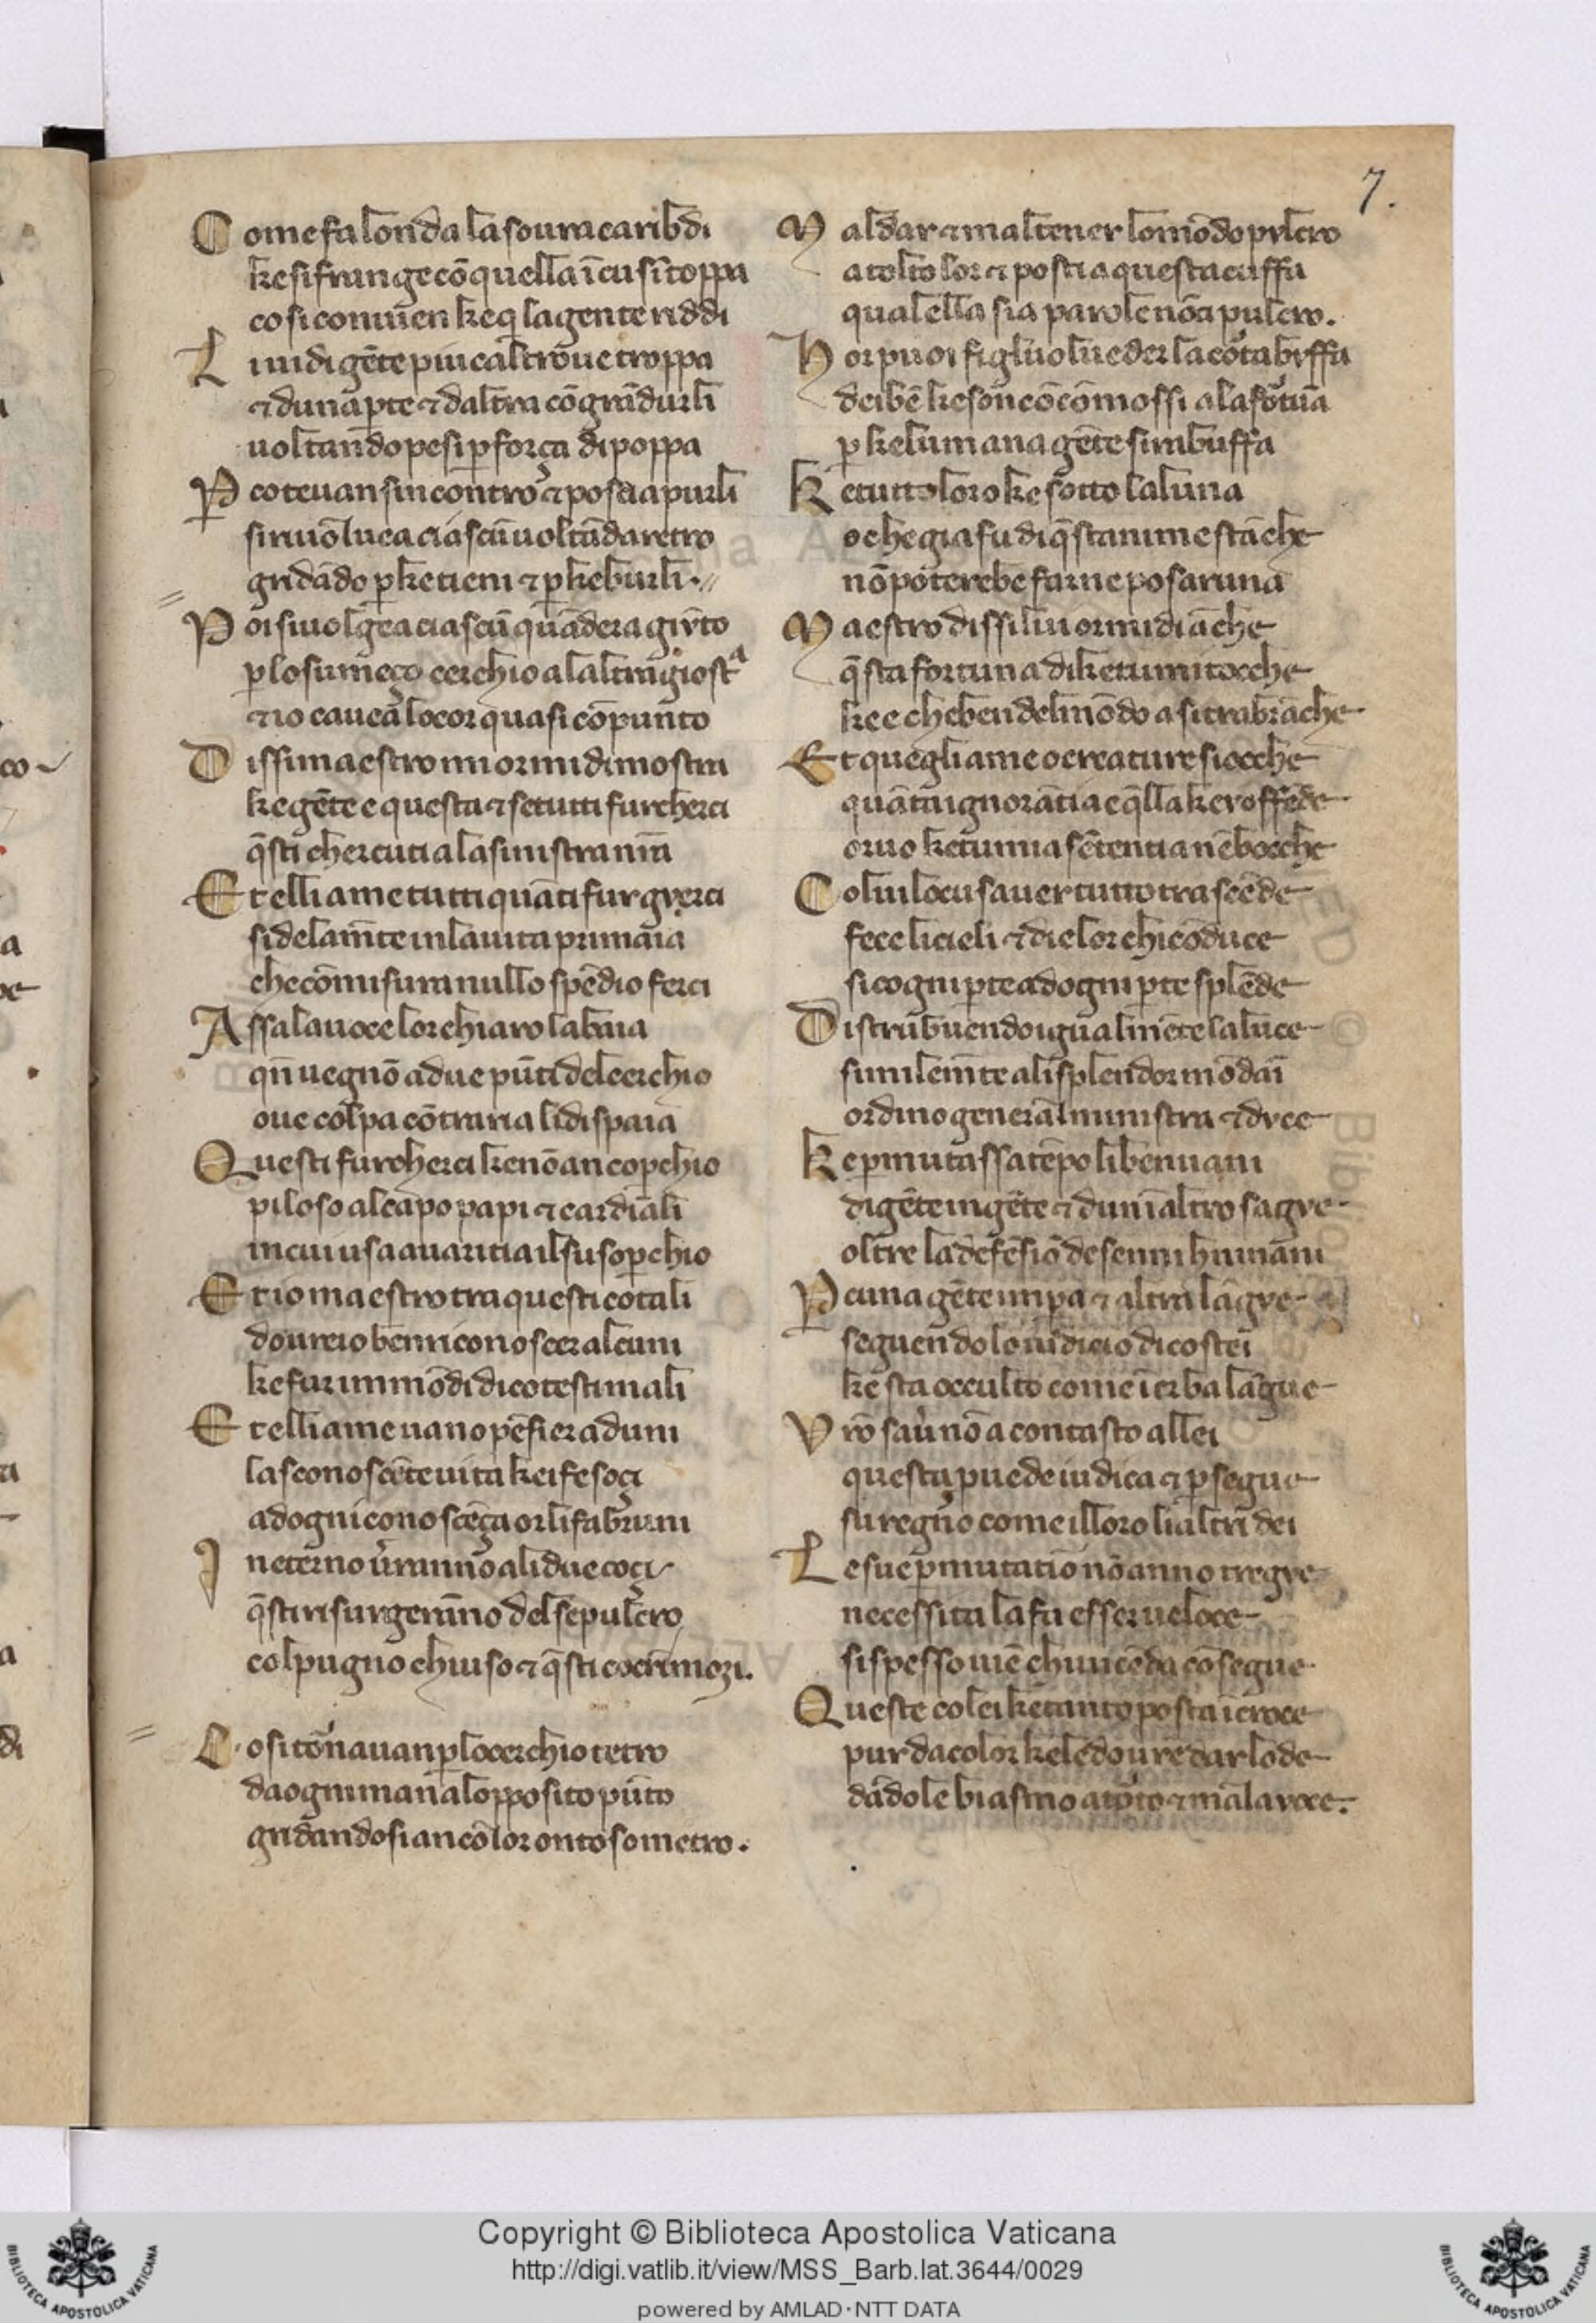 7.
Come fa londa la soura caribdi
ke si frange cō quella ī cui sītoppa
cosi conuien ke q̄ la gente riddi
L ui di gēte piu caltroue troppa
⁊ duna p̱te ⁊ daltra cō grādurli
uoltando pesi p̱ força di poppa
P̱coteuansincontro ⁊ poscia purli
si riuoluea ciascū uoltāda retro
gridādo p̱ke tieni ⁊ p̱ke burli.
Poi si uolgea ciascū quādera givto
p̱ lo su meço cerchio alaltra giostra
⁊ io cauea lo cor quasi cōpunto
Dissi maestro mio or mi dimostra
ke gēte e questa ⁊ se tutti fur cherci
q̄sti chercuti ala sinistra nr̄a
Et elli a me tutti quāti fur gverci
si dela mēte in la uita primaia
che cō misura nullo spēdio ferci
Assa la uoce lor chiaro labaia
qn̄ uegnō a due pūti del cerchio
oue colpa cōtraria li dispaia
Questi fur cherci ke nō an cop̱chio
piloso al capo papi ⁊ cardīali
in cui usa auaritia il su sop̱chio
Et io maestro tra questi cotali
dourei o ben riconoscer alcuni
ke fur immōdi di cotesti mali
Et elli a me uano pēsier aduni
la sconoscēte uita kei fe soçi
ad ogni conoscēça or li fa bruni
In eterno uerranno ali due coçi
q̄sti risurgerāno del sepulcro
col pugno chiuso ⁊ q̄sti co crin moçi.
Cosi tornauan p̱ lo cerchio tetro
da ogni mano alopposito pūto
gridandosi anco lor ontoso metro.
Mal dar ⁊ mal tener lo mōdo pvlcro
a tolto lor ⁊ posti a questa çuffa
qual ella sia parole nō ci pulcro.
Hor puoi figliuol ueder la corta bvffa
dei bē ke son cōmossi ala fortuna
p̱ ke lumana gēte si rabuffa
Ke tutto loro ke sotto la luna
o che gia fu di q̄stanime stāche
nō poterebe farne posar una
Maestro dissi lui or mi di āche
q̄sta fortuna di ke tu mi tocche
ke e che ben del mōdo a si tra brāche
Et quegli a me o creature siocche
quāta ignorātia e q̄lla ke voffēde
or uo ke tu mia sētentia nēbocche
Colui lo cu sauer tutto trascēde
fece li cieli ⁊ die lor chi cōduce
si cogni p̱te ad ogni p̱te splēde
Distribuendo igualmēte la luce
similemēte ali splendor mōdāi
ordino general ministra ⁊ dvce
Ke p̱mutassa tēpo li ben uani
di gēte in gēte ⁊ dun ī altro sagve
oltre la defēsiō de senni humani
P̱cuna gēte impa ⁊ altra lāgve
seguendo lo iudicio di costei
ke sta occulto come ī erba lāgue
Vr̄o sauer nō a contasto a llei
questa puede iudica ⁊ p̱segue
su regno come il loro li altri dei
Le sue p̱mutatio nō anno tregve
necessita la fa esser ueloce
si spesso uiē chi uicēda cōsegue
Queste colei ke tanto posta ī croce
pur da color ke le dourē dar lode
dādole biasmo a torto ⁊ mala voce.
Copyright © Biblioteca Apostolica Vaticana
http://digi.vatlib.it/view/MSS_Barb.lat.3644/0029
powered by AMLAD·NTT DATA
BIBLIOTECA APOSTOLICA VATICANA
BIBLIOTECA APOSTOLICA VATICANA